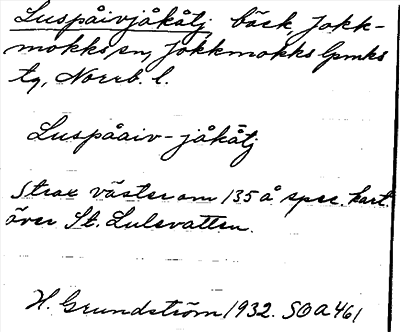 Luspåivjåkåtj bäck, Jokk-
mokks sn, Jokkmokks lpmks
tg, Norrb. l.
Luspåaiv-jåkåtj
Strax väster om 135 å spec. kart.
över St. Lulevatten.
H. Grundström 1932. SOA 461